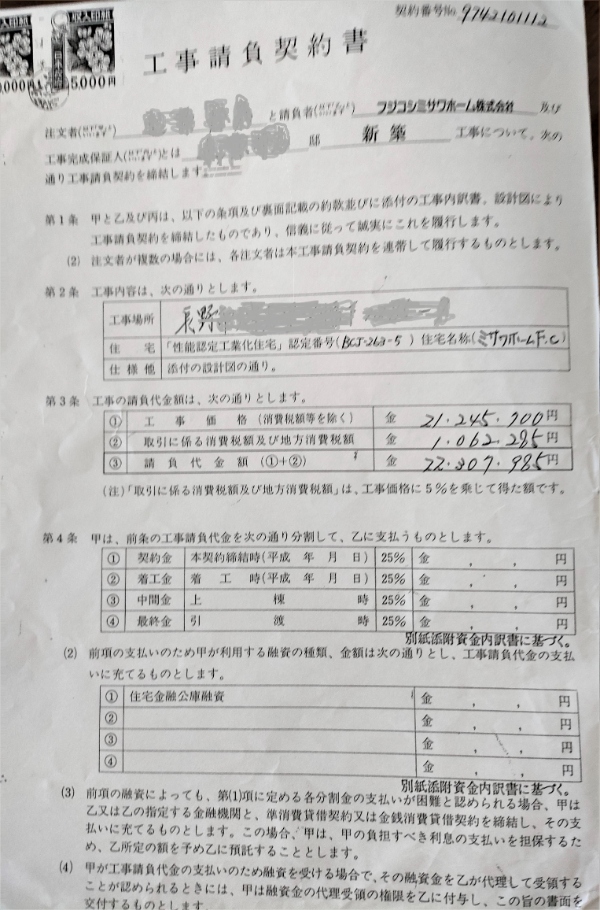 契約番号No. 9742101112
収入印紙
5,000円
工事請負契約書
注文者 と請負者 フジコシミサワホーム株式会社 及び
工事完成保証人 とは 邸 新築 工事について、次の
通り工事請負契約を締結します。
第1条 甲と乙及び丙は、以下の条項及び裏面記載の約款並びに添付の工事内訳書、設計図により
工事請負契約を締結したものであり、信義に従って誠実にこれを履行します。
(2) 注文者が複数の場合には、各注文者は本工事請負契約を連帯して履行するものとします。
第2条 工事内容は、次の通りとします。
工事場所 長野
住宅 「性能認定工業化住宅」認定番号(BCJ-263-5) 住宅名称(ミサワホームF.C)
仕様他 添付の設計図の通り。
第3条 工事の請負代金額は、次の通りとします。
① 工事価格(消費税額等を除く) 金 21.245.700円
② 取引に係る消費税額及び地方消費税額 金 1.062.285円
③ 請負代金額(①+②) 金 22.307.985円
(注)「取引に係る消費税額及び地方消費税額」は、工事価格に5%を乗じて得た額です。
第4条 甲は、前条の工事請負代金を次の通り分割して、乙に支払うものとします。
① 契約金 本契約締結時(平成 年 月 日) 25% 金 , , 円
② 着工金 着工時(平成 年 月 日) 25% 金 , , 円
③ 中間金 上棟時 25% 金 , , 円
④ 最終金 引渡時 25% 金 , , 円
別紙添附資金内訳書に基づく。
(2) 前項の支払いのため甲が利用する融資の種類、金額は次の通りとし、工事請負代金の支払
いに充てるものとします。
① 住宅金融公庫融資 金 , , 円
② 金 , , 円
③ 金 , , 円
④ 金 , , 円
別紙添附資金内訳書に基づく。
(3) 前項の融資によっても、第(1)項に定める各分割金の支払いが困難と認められる場合、甲は
乙又は乙の指定する金融機関と、準消費貸借契約又は金銭消費貸借契約を締結し、その支
払いに充てるものとします。この場合、甲は、甲の負担すべき利息の支払いを担保するた
め、乙所定の額を予め乙に預託することとする。
(4) 甲が工事請負代金の支払いのため融資を受ける場合で、その融資金を乙が代理して受領する
ことが認められるときには、甲は融資金の代理受領の権限を乙に付与し、この旨の書面を
交付するものとします。